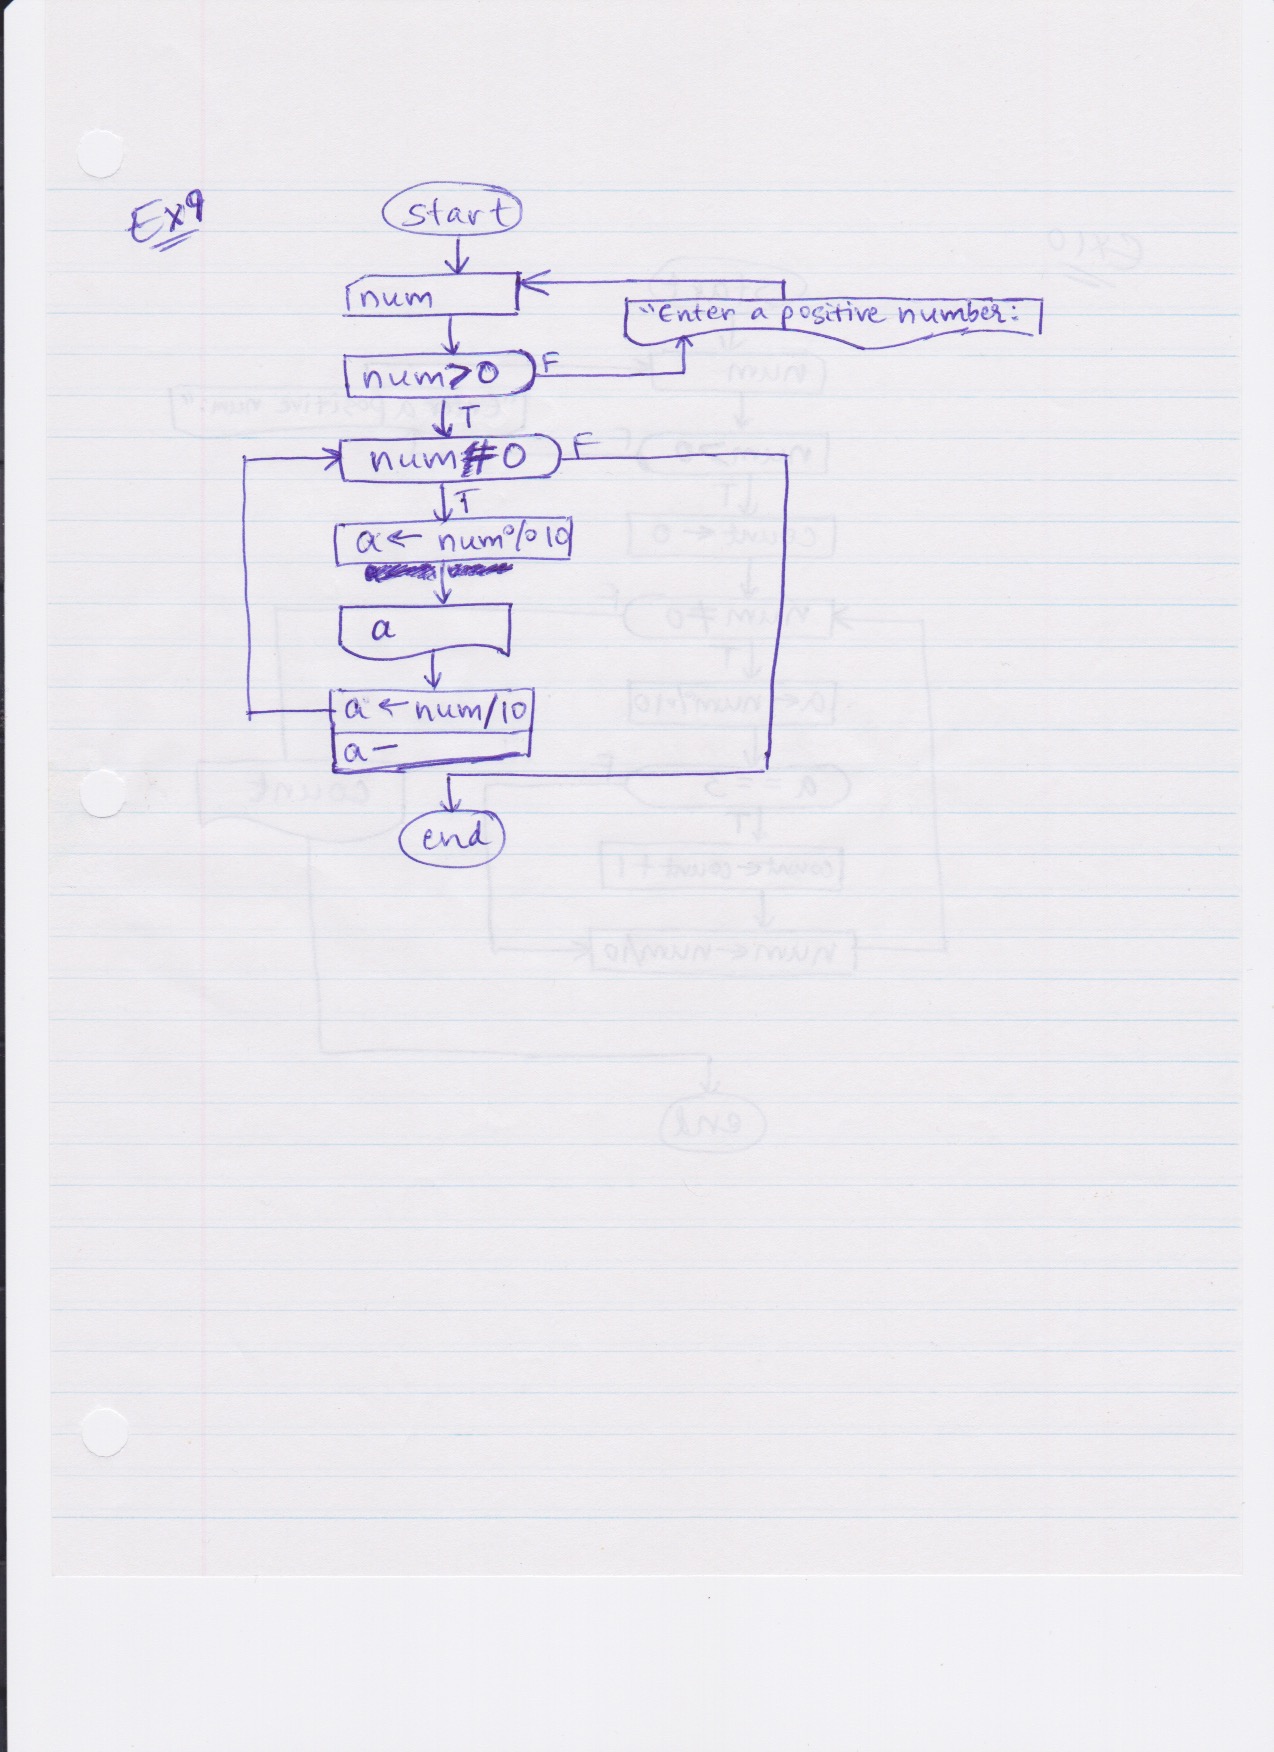 Ex9
start
num
"Enter a positive number:
num>0
F
T
num≠0
F
T
a ← num%10
a
a ← num/10
a –
end